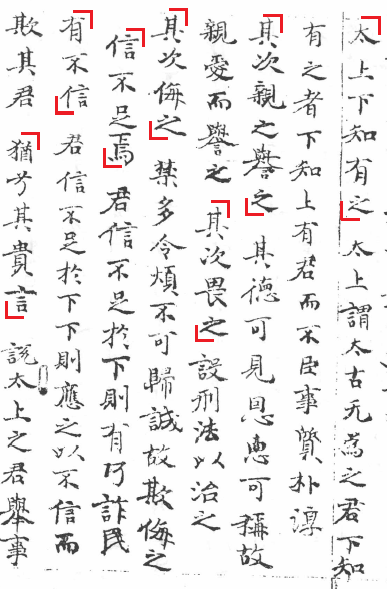 太上下知有之太上謂太古无為之君下知
有之者下知上有君而不臣事質朴淳
其次親之譽之其德可見恩惠可稱故
親愛而譽之其次畏之設刑法以治之
其次侮之禁多令煩不可歸誠故欺侮之
信不足焉君信不足於下則有巧詐民
有不信君信不足於下下則應之以不信而
欺其君猶兮其貴言說太上之君舉事